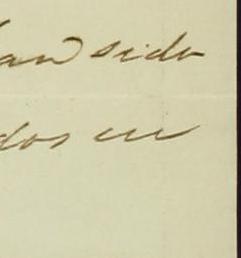 han sido
dos en